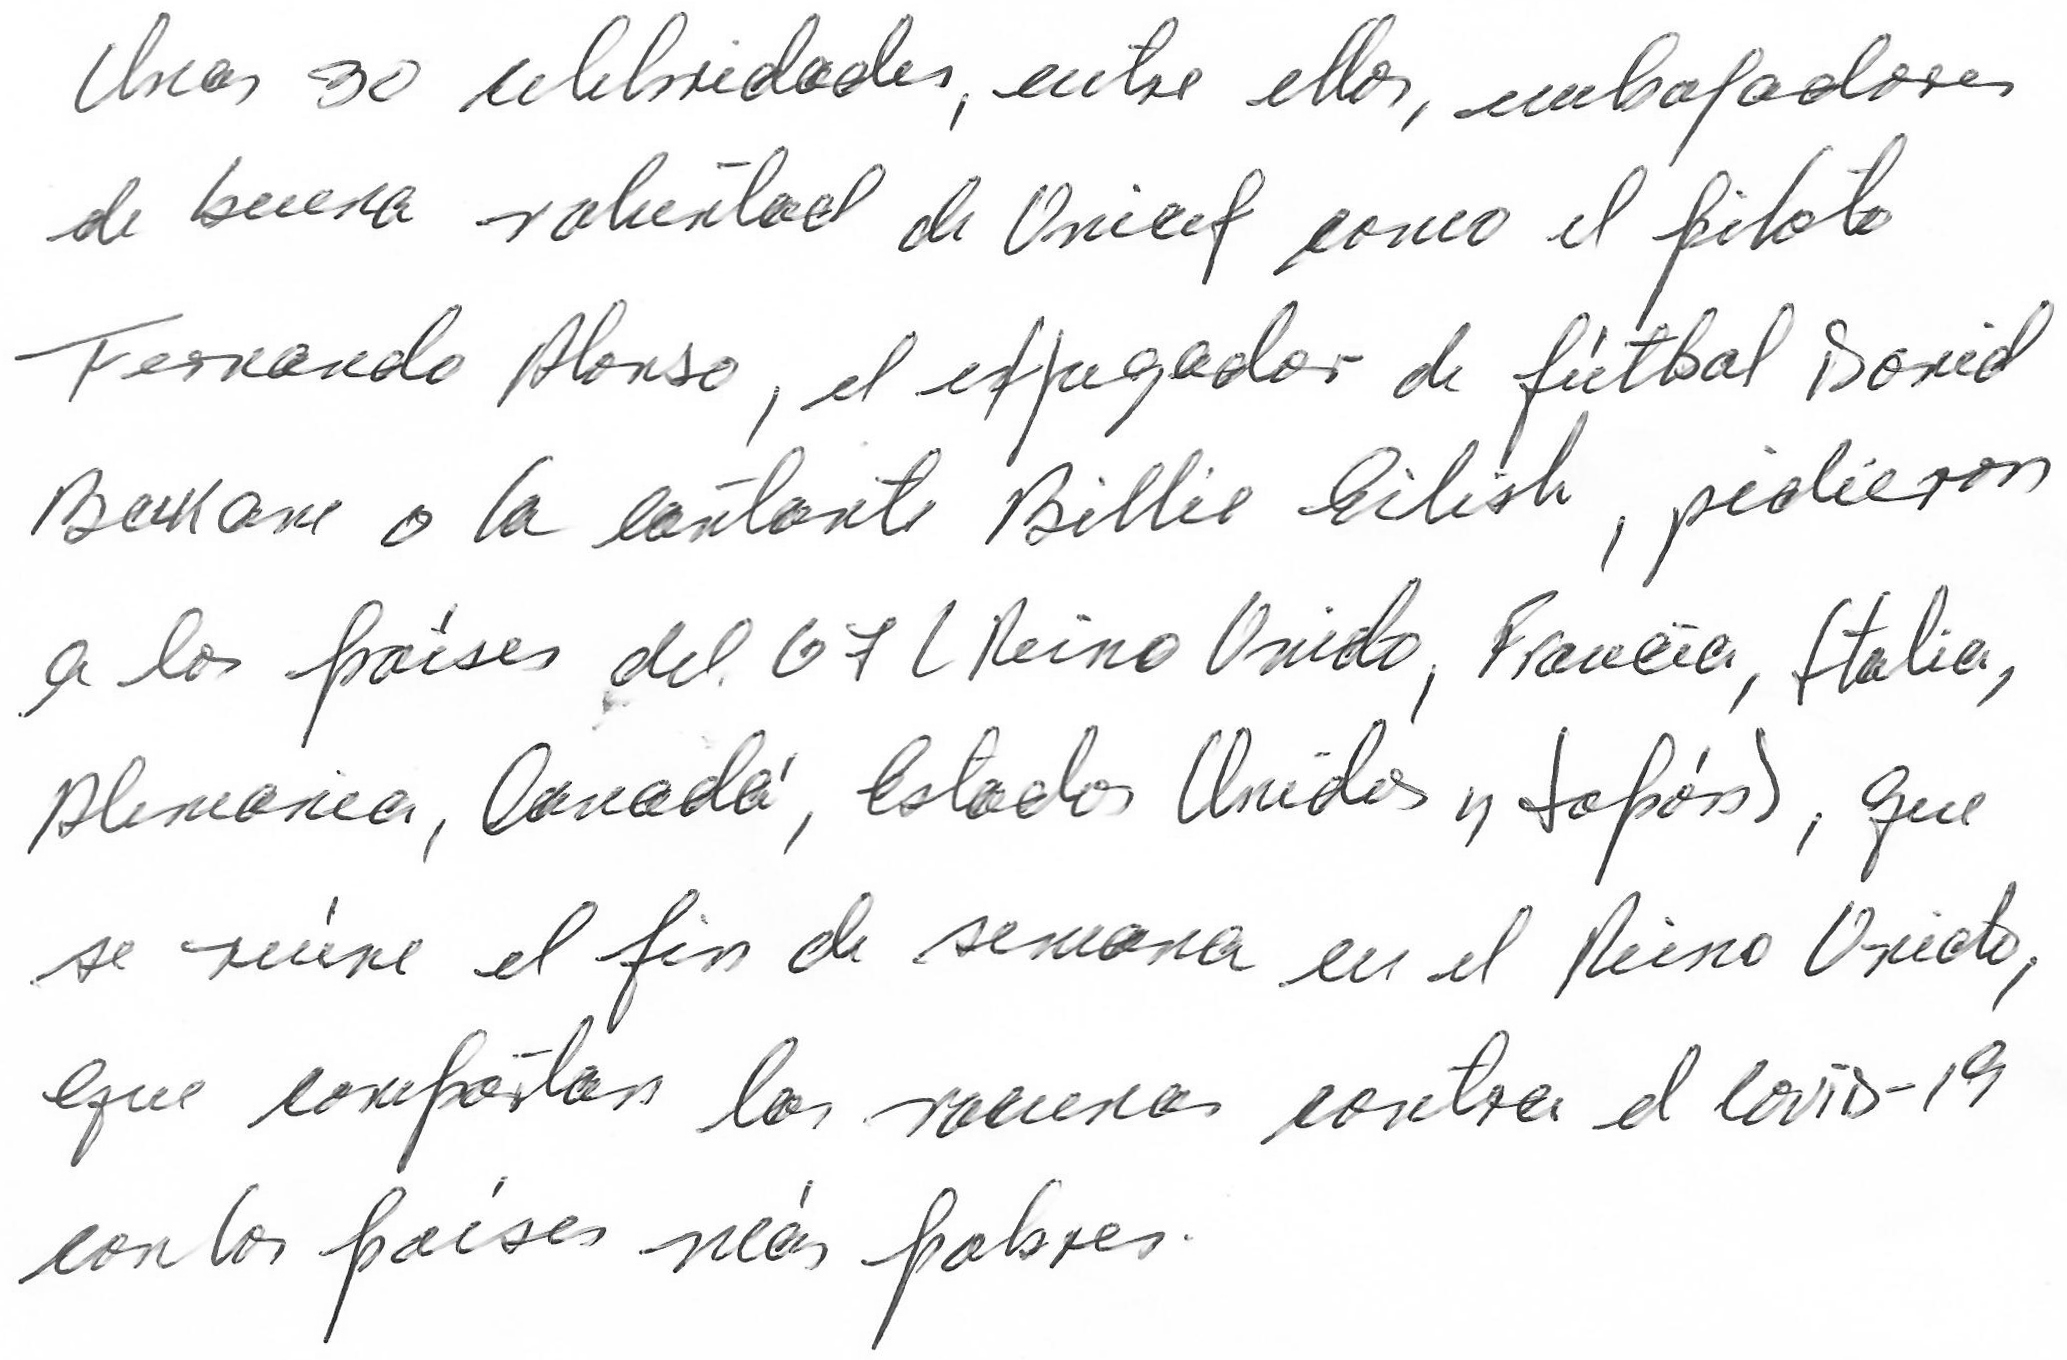 Unas 30 celebridades, entre ellos, embajadores
de buena voluntad de Unicef como el piloto
Fernando Alonso, el exjugador de fútbol David
Beckam o la cantante Billie Eilish, pidieron
a los países del G7 (Reino Unido, Francia, Italia,
Alemania, Canadá, Estados Unidos y Japón), que
se reúne el fin de semana en el Reino Unido,
que compartan las vacunas contra el COVID-19
con los países más pobres.